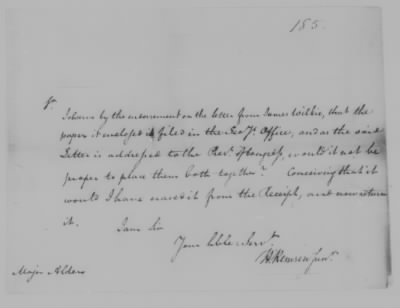 185.
Sr
I observe by the endorsement on the letter from James Wilkie, that the
paper it enclosed is filed in the Secy's. Office, and as the said
Letter is addressed to the Prest. of Congress, would it not be
proper to place them both together? Conceiving that it
would I have erased it from the Receipt, and now return
it.
I am Sir
Your hble Servt.
H. Remsen Junr.
Major Alden